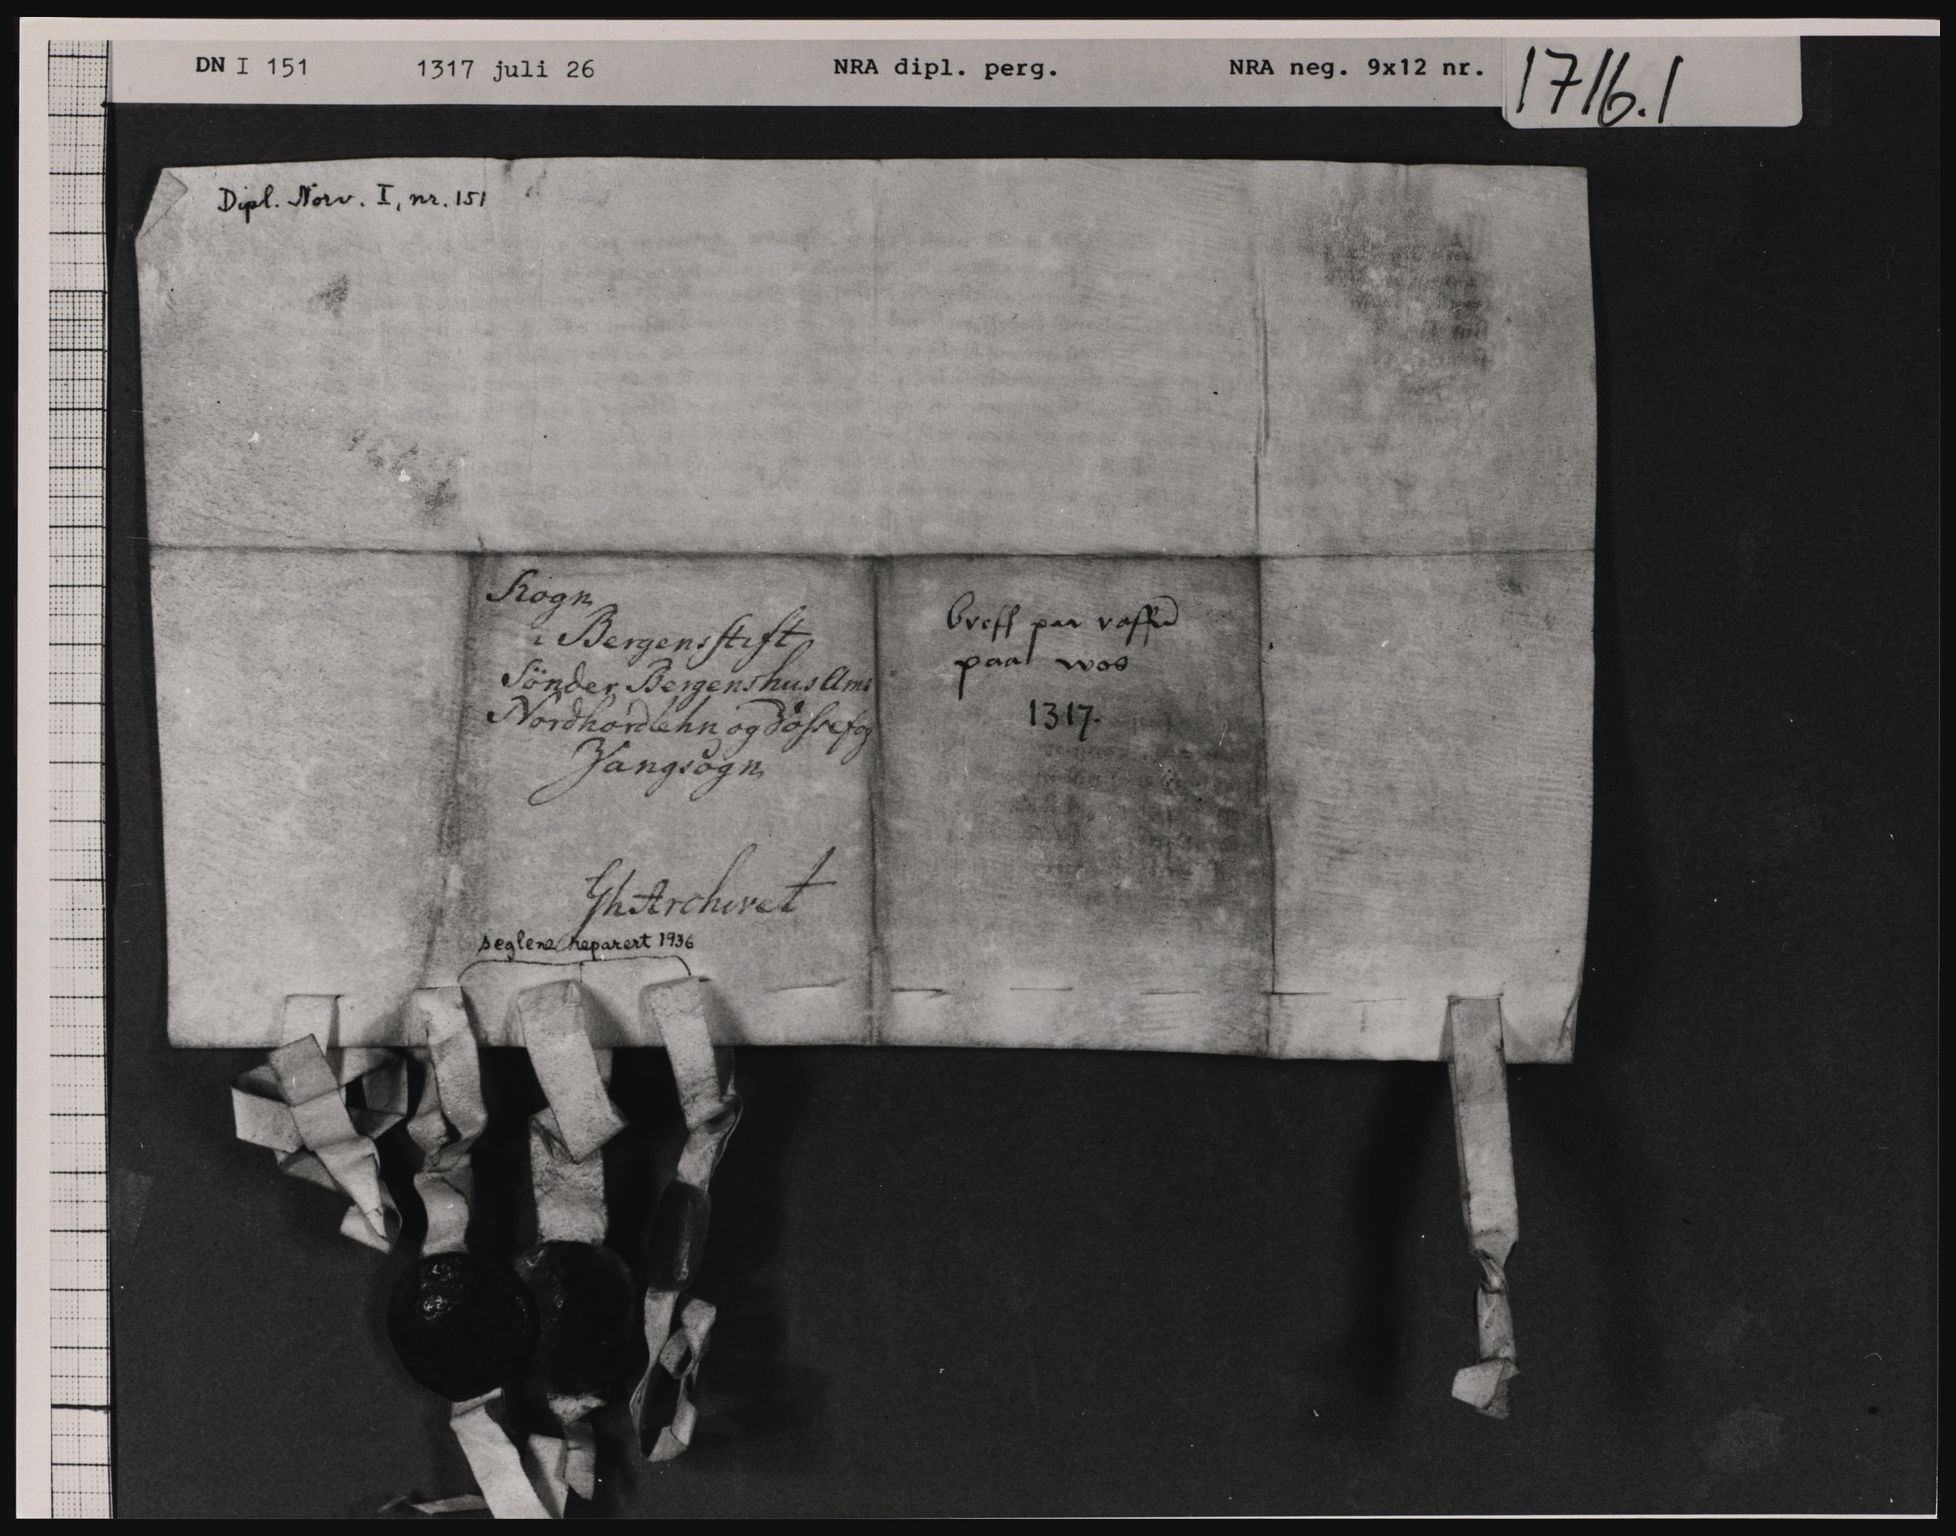 DN I 151 1317 juli 26 NRA dipl. perg. NRA neg. 9x12 nr. 1716.1
Dipl. Norv. I, nr. 151
i Bergens stift
Sönder Bergenshus Amt
Nordhordlehn og Vossefog
Vangsogn
Gh Archivet
seglene reparert 1936
breff paa
paa wos
1317.